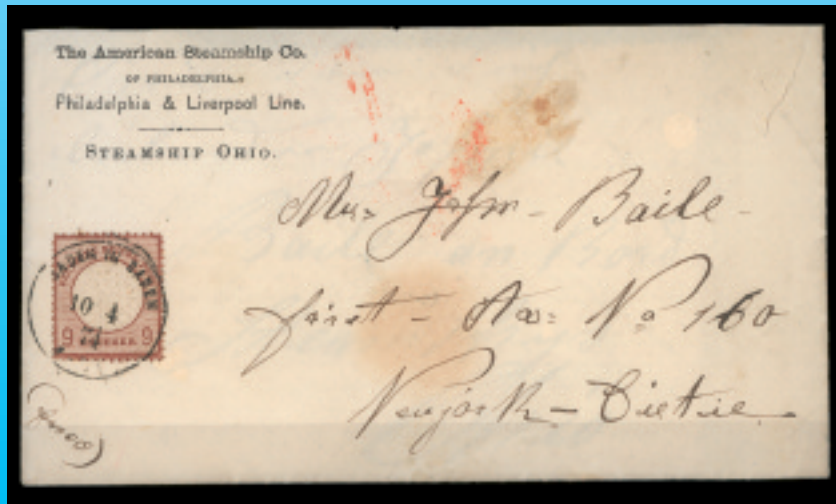 The American Steamship Co.
OF PHILADELPHIA.
Philadelphia & Liverpool Line.
STEAMSHIP OHIO.
John - Baile -
BADEN IN BADEN
10 4
first - Av: No 160
9 9
Newjork - Cietie